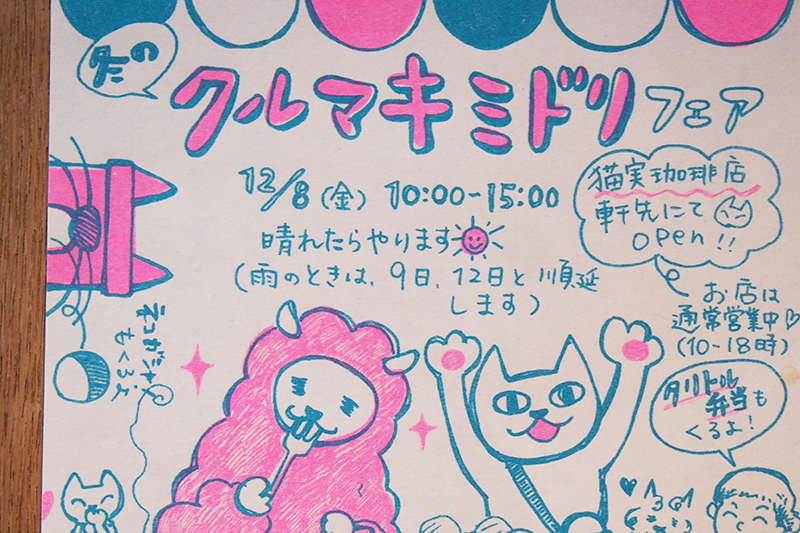 冬の
クルマキミドリフェア
12/8(金) 10:00-15:00
晴れたらやります
(雨のときは、9日、12日と順延
します)
猫実珈琲店
軒先にて
open!!
お店は
通常営業中♡
(10-18時)
ネコガシャ
もくるよ
タリトル
弁当も
くるよ!